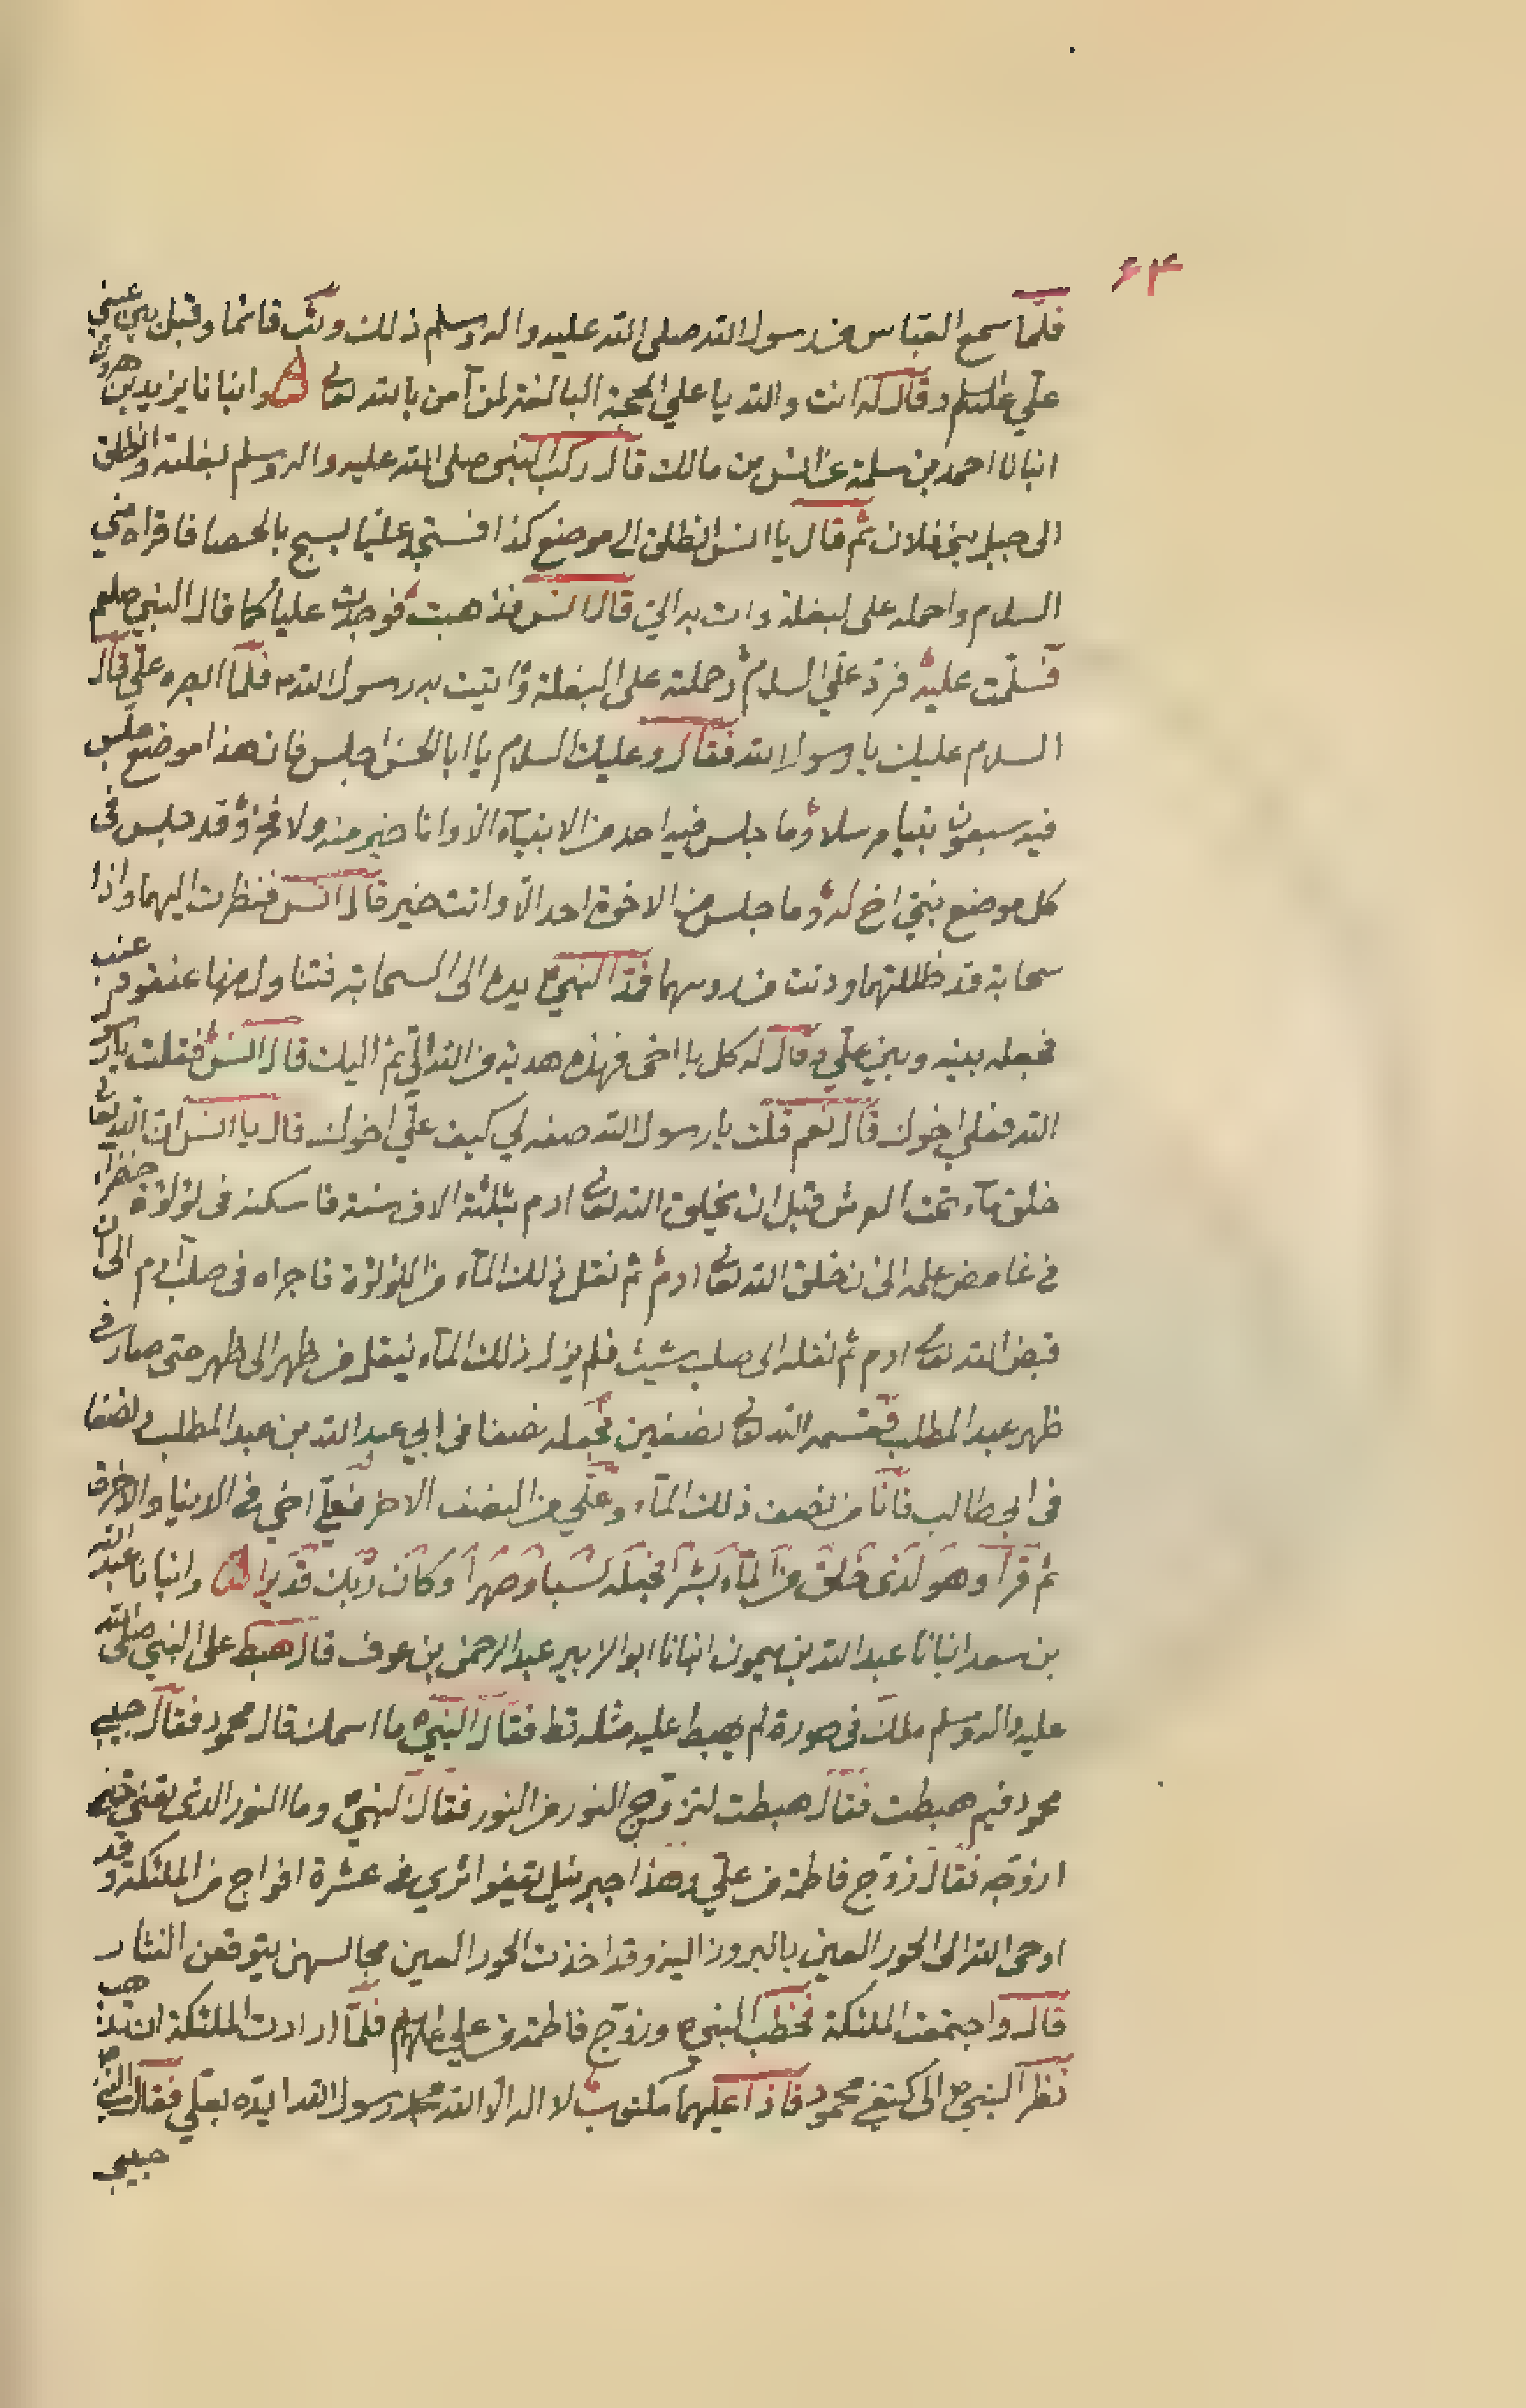 ۶۴
فلما سمع العباس من رسول الله صلى الله عليه واله وسلم ذلك وثب قائما وقبل بين عيني
علي عليه السلم وقال له انت والله يا علي الحجة البالغة لمن آمن بالله تعالى وانبانا يزيد بن هرون
انبانا احمد بن سلمة عن انس بن مالك قال ركب النبي صلى الله عليه واله وسلم بغلته وانطلق
الى جبل بني فلان ثم قال يا انس انطلق الى موضع كذا فستجد عليا يسبح بالحصا فاقراه مني
السلام واحمله على بغلة وات به الي قال انس فذهبت فوجدت عليا كما قال النبي صلعم
فسلمت عليه فرد علي السلام وحملته على البغلة واتيت به رسول الله فلما ابصره علي قال
السلام عليك يا رسول الله فقال وعليك السلام يا ابا الحسن اجلس فان هذا موضع جلس
فيه سبعون نبيا مرسلا وما جلس فيه احد من الانبياء الا وانا خير منه ولا فخر وقد جلس في
كل موضع نبي اخ له وما جلس من الاخوة احد الا وانت خير قال انس فنظرت اليهما واذا
سحابة قد ظللتهما ودنت من رءوسهما فمد النبي يده الى السحابة فتناول منها عنقود عنب
فجعله بينه وبين علي وقال له كل يا اخي فهذه هدية من الله الي ثم اليك قال انس فقلت يا رسول
الله فعلي اخوك قال نعم قلت يا رسول الله صفه لي كيف علي اخوك قال يا انس ان الله تعالى
خلق ماء تحت العرش قبل ان يخلق الله تعالى ادم بثلثة الاف سنة فاسكنه في لؤلؤة خضراء
في غامض علمه الى ن خلق الله تعالى ادم ثم نقل ذلك الماء من اللؤلؤة فاجراه في صلب ادم الى ان
قبض الله تعالى ادم ثم نقله الى صلب شيث فلم يزل ذلك الماء ينقل من ظهر الى ظهر حتى صار في
ظهر عبد المطلب فقسمه الله تعالى نصفين فجعله نصفا في ابي عبد الله بن عبد المطلب ونصفا
في ابي طالب فانا من نصف ذلك الماء وعلي من النصف الاخر فعلي اخي في الدنيا والاخرة
ثم قرأ وهو الذي خلق من الماء بشرا فجعله نسبا وصهرا وكان ربك قديرا وانبانا عبد الله
بن سعد انبانا عبد الله بن ميمون انبانا ابو الابير عبد الرحمن بن عوف قال هبط على النبي صلى الله
عليه واله وسلم ملك في صورة لم يهبط عليه مثله قط فقال النبي ما اسمك قال محمود فقال حبيبي
محمود فيم هبطت فقال هبطت لتزوج النور من النور فقال النبي وما النور الذي
ازوجه فقال زوج فاطمة من علي وهذا جبرئيل يقفوا اثري في عشرة افواج من الملئكة وقد
اوحى الله الى الحور العين بالبروز اليه وقد اخذت الحور العين مجالسهن يتوقعن النثار
قال واجتمعت الملئكة فخطب النبي وزوج فاطمة من علي عليهما السلم فلما ارادت الملئكة ان تذهب
نظر النبي الى كتفي محمود فاذا عليهما مكتوب لا اله الا الله محمد رسول الله ايده بعلي فقال النبي
حبيبي